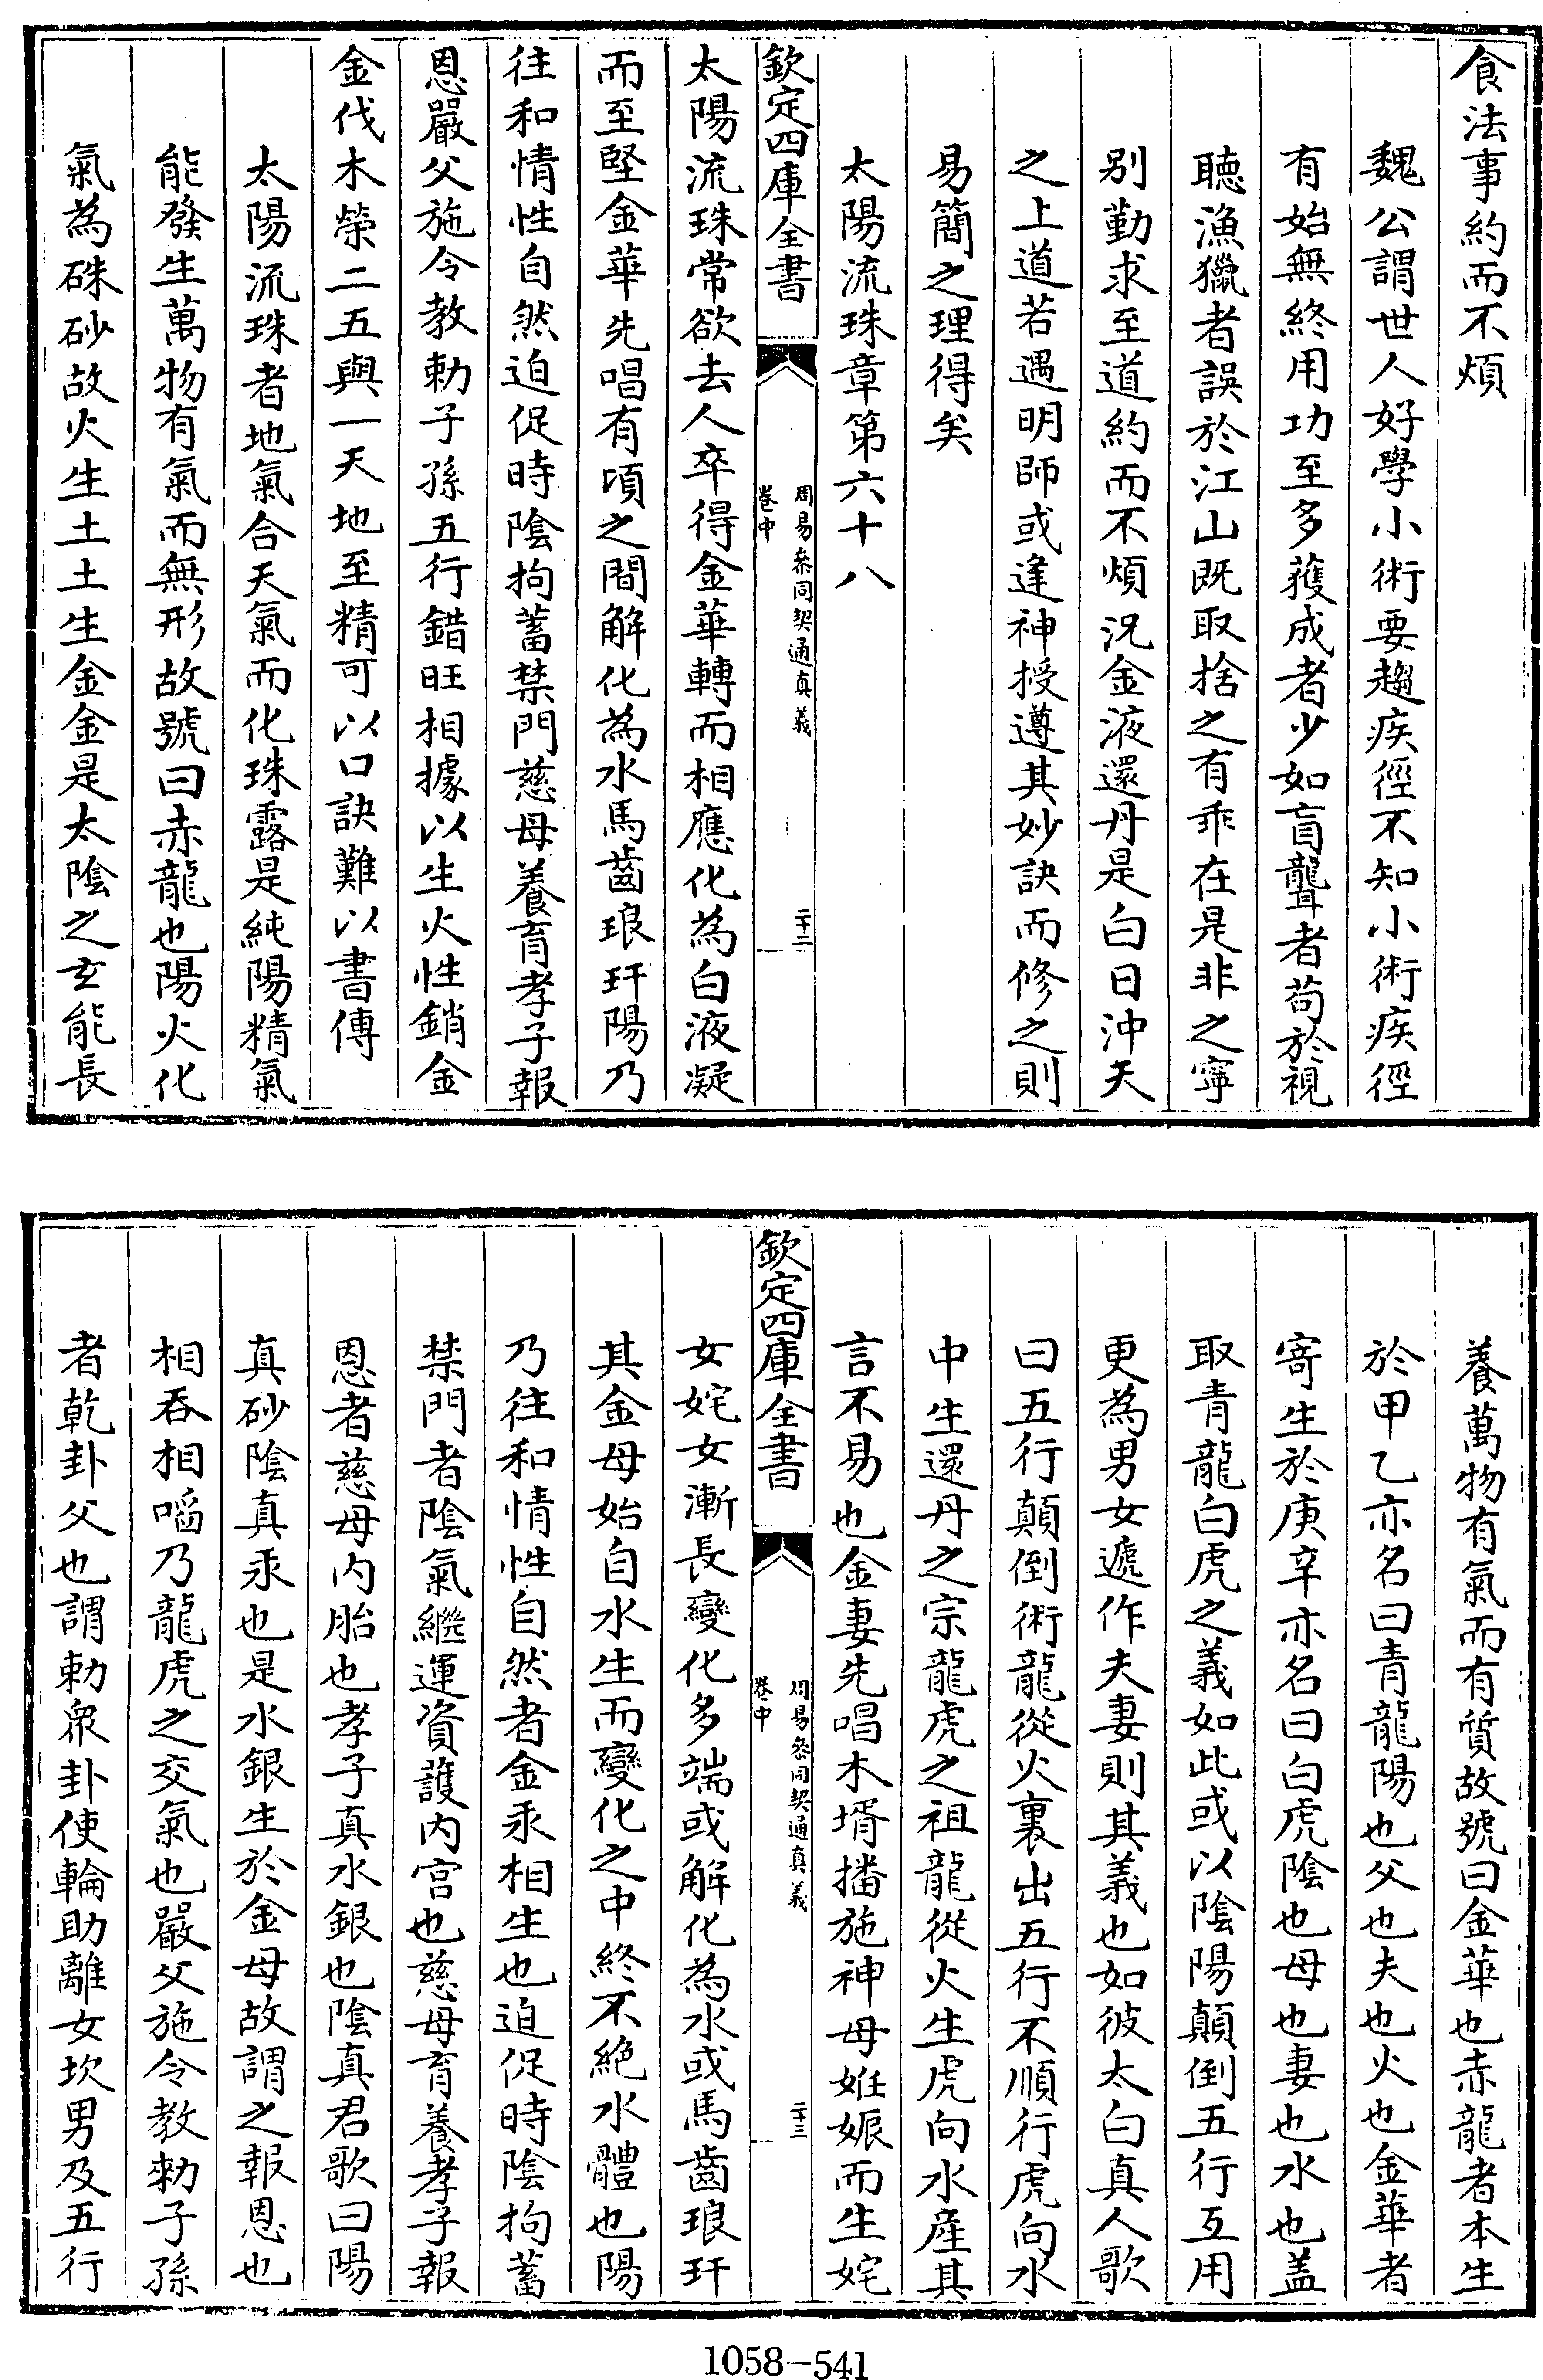 食法事約而不煩
魏公謂世人好學小術要趨疾徑不知小術疾徑
有始無終用功至多獲成者少如盲聾者苟於視
聽漁獵者誤於江山既取捨之有乖在是非之寧
别勤求至道約而不煩況金液還丹是白日沖天
之上道若遇明師或逢神授遵其妙訣而修之則
易簡之理得矣
太陽流珠章第六十八
欽定四庫全書
周易叅同契通真義
卷中
二十二
太陽流珠常欲去人卒得金華轉而相應化為白液凝
而至堅金華先唱有頃之間解化為水馬齒琅玕陽乃
往和情性自然迫促時陰拘蓄禁門慈母養育孝子報
恩嚴父施令教勅子孫五行錯旺相據以生火性銷金
金伐木榮二五與一天地至精可以口訣難以書傳
太陽流珠者地氣合天氣而化珠露是純陽精氣
能發生萬物有氣而無形故號曰赤龍也陽火化
氣為硃砂故火生土土生金金是太陰之玄能長
養萬物有氣而有質故號曰金華也赤龍者本生
於甲乙亦名曰青龍陽也父也夫也火也金華者
寄生於庚辛亦名曰白虎陰也母也妻也水也盖
取青龍白虎之義如此或以陰陽顛倒五行互用
更為男女遞作夫妻則其義也如彼太白真人歌
曰五行顛倒術龍從火裏出五行不順行虎向水
中生還丹之宗龍虎之祖龍從火生虎向水産其
言不易也金妻先唱木壻播施神母姙娠而生姹
欽定四庫全書
周易叅同契通真義
卷中
二十三
女姹女漸長變化多端或解化為水或馬齒琅玕
其金母始自水生而變化之中終不絶水體也陽
乃往和情性自然者金汞相生也迫促時陰拘蓄
禁門者陰氣繼運資護内宫也慈母育養孝子報
恩者慈母内胎也孝子真水銀也陰真君歌曰陽
真砂陰真汞也是水銀生於金母故謂之報恩也
相吞相啗乃龍虎之交氣也嚴父施令教勅子孫
者乾卦父也謂勅衆卦使輪助離女坎男及五行
1058-541